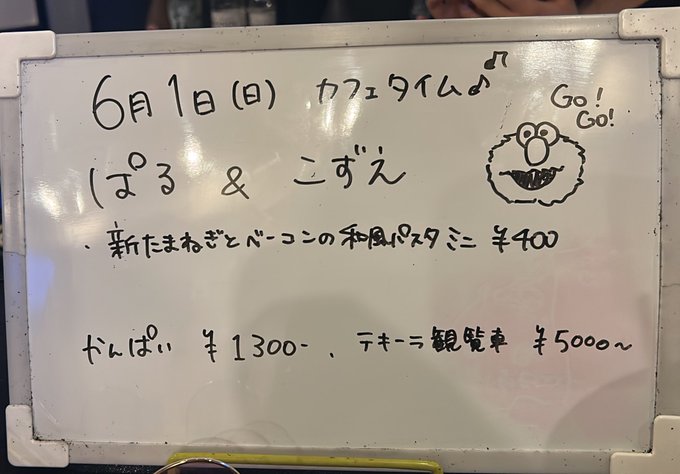 6月1日(日) カフェタイム♪
Go!
Go!
ぱる & こずえ
・新たまねぎとベーコンの和風パスタミニ ¥400
かんぱい ¥1300-、テキーラ観覧車 ¥5000〜